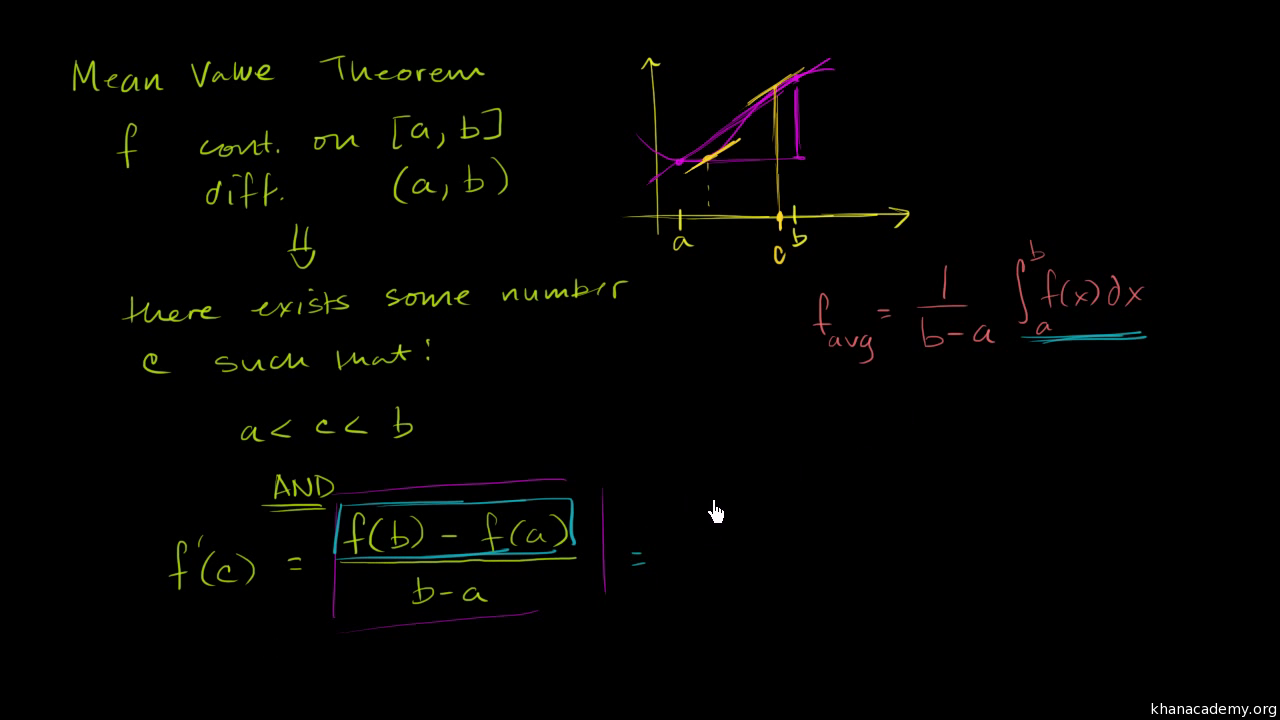 Mean Value Theorem
f cont. on [a, b]
diff. (a, b)
⇓
there exists some number
c such that:
a < c < b
AND
f'(c) = \frac{f(b) - f(a)}{b - a} =
a
c
b
f_{avg} = \frac{1}{b-a} \int_a^b f(x) dx
khanacademy.org